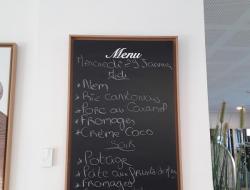 Menu
Mercredi 29 Janvier
Midi
* Nem
* Riz cantonais
* Porc au Caramel
* Fromages
* Crème Coco
Soir
* Potage
* Pâte aux fruits de mer
* Fromages